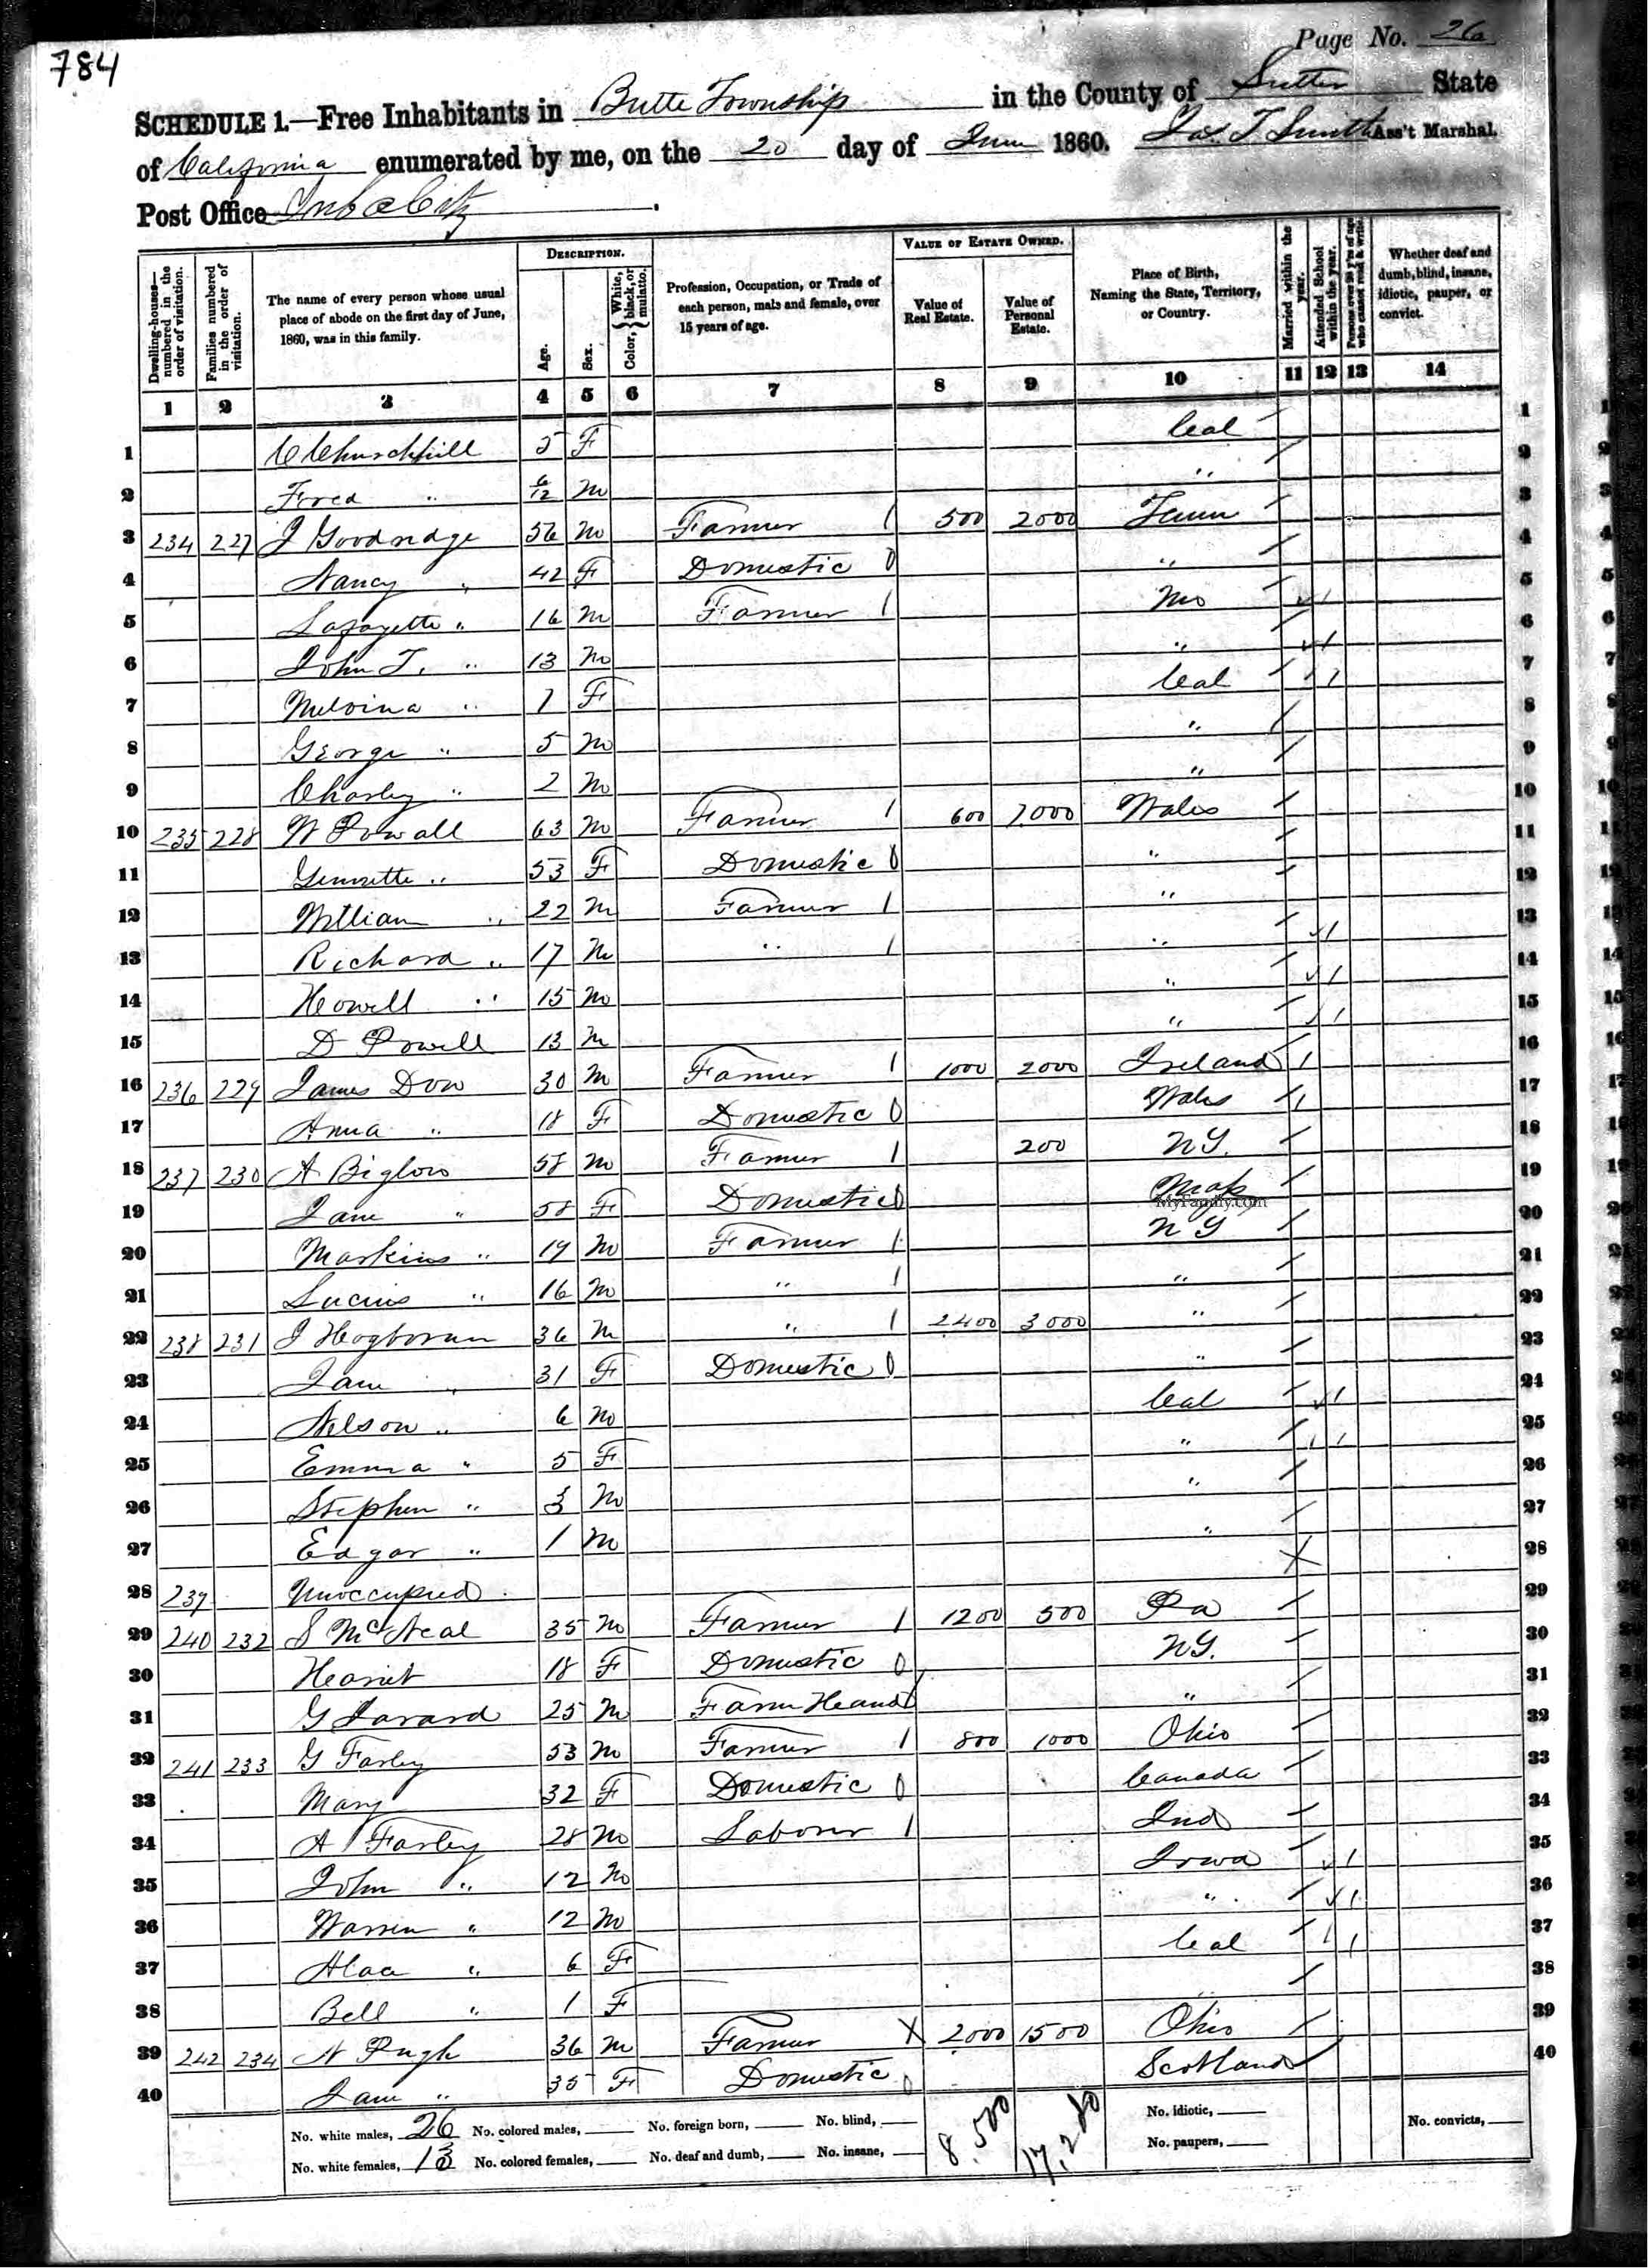 784
Page No. 26
SCHEDULE 1.—Free Inhabitants in Butte Township in the County of Sutter State
of California enumerated by me, on the 20 day of June 1860. Jas. T Smith Ass't Marshal.
Post Office Yuba City.
Dwelling-houses—numbered in the order of visitation.
Families numbered in the order of visitation.
The name of every person whose usual place of abode on the first day of June, 1860, was in this family.
DESCRIPTION.
Age.
Sex.
Color, White, black, or mulatto.
Profession, Occupation, or Trade of each person, male and female, over 15 years of age.
VALUE OF ESTATE OWNED.
Value of Real Estate.
Value of Personal Estate.
Place of Birth, Naming the State, Territory, or Country.
Married within the year.
Attended School within the year.
Persons over 20 y'rs of age who cannot read & write.
Whether deaf and dumb, blind, insane, idiotic, pauper, or convict.
1 2 3 4 5 6 7 8 9 10 11 12 13 14
1 C Churchhill 5 F Cal / 1
2 Fred " 6/12 M " / 2
3 234 227 J Goodridge 56 M Farmer 1 500 2000 Tenn / 3
4 Nancy " 42 F Domestic 0 " / 4
5 Lafayette " 16 M Farmer 1 Mo / ✓ 1 5
6 John T. " 13 M " / ✓ 1 6
7 Melvina " 7 F Cal / 1 1 7
8 George " 5 M " / 8
9 Charley " 2 M " / 9
10 235 228 W Powall 63 M Farmer 1 600 7000 Wales / 10
11 Gennette " 53 F Domestic 0 " / 11
12 William " 22 M Farmer 1 " / 12
13 Richard " 17 M " 1 " / ✓ 1 13
14 Howell " 15 M " / ✓ 1 14
15 D Powell 13 M " / ✓ 1 15
16 236 229 James Dow 30 M Farmer 1 1000 2000 Ireland / 1 16
17 Anna " 18 F Domestic 0 Wales / 1 17
18 237 230 A Biglow 58 M Farmer 1 200 N Y. / 18
19 Jane " 58 F Domestic 0 Mass / 19
MyFamily.com
20 " 19 M Farmer 1 N Y / 20
21 Lucius " 16 M " 1 " / 21
22 238 231 J 36 M " 1 2400 3000 " / 22
23 Jane " 31 F Domestic 0 " / 23
24 Nelson " 6 M Cal / ✓ 1 24
25 Emma " 5 F " / 1 1 25
26 Stephen " 3 M " / 26
27 Edgar " 1 M " / 27
28 239 Unoccupied X 28
29 240 232 S McNeal 35 M Farmer 1 1200 500 Pa / 29
30 Harriet 18 F Domestic 0 N Y. / 30
31 G 25 M Farm Hand 1 " / 31
32 241 233 G Farley 53 M Farmer 1 800 1000 Ohio / 32
33 Mary 32 F Domestic 0 Canada / 33
34 A Farley 28 M Laborer 1 Ind / 34
35 John " 12 M Iowa / ✓ 1 35
36 Warren " 12 M " / ✓ 1 36
37 " 6 F Cal / 1 1 37
38 Bell " 1 F / 38
39 242 234 N Pugh 36 M Farmer X 2000 1500 Ohio / 39
40 Jane " 35 F Domestic 0 Scotland / 40
No. white males, 26 No. colored males, No. foreign born, No. blind, 8,500 17,200 No. idiotic, No. convicts,
No. white females, 13 No. colored females, No. deaf and dumb, No. insane, No. paupers,